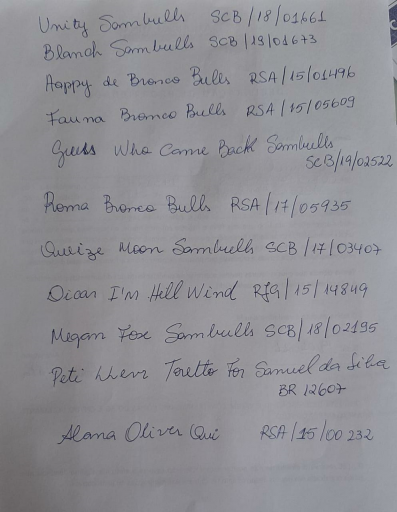 Unity Sambulls SCB/18/01661
Blanch Sambulls SCB/19/01673
Happy de Bronco Bulls RSA/15/01496
Fauna Bronco Bulls RSA/15/05609
Guess Who Come Back Sambulls
SCB/19/02522
Roma Bronco Bulls RSA/17/05935
Queize Moon Sambulls SCB/17/03407
Dican I'm Hell Wind RJG/15/14849
Megan Fox Sambulls SCB/18/02195
Peti Toretto For Samuel da Silva
BR 12607
Alana Oliver Qui RSA/15/00232